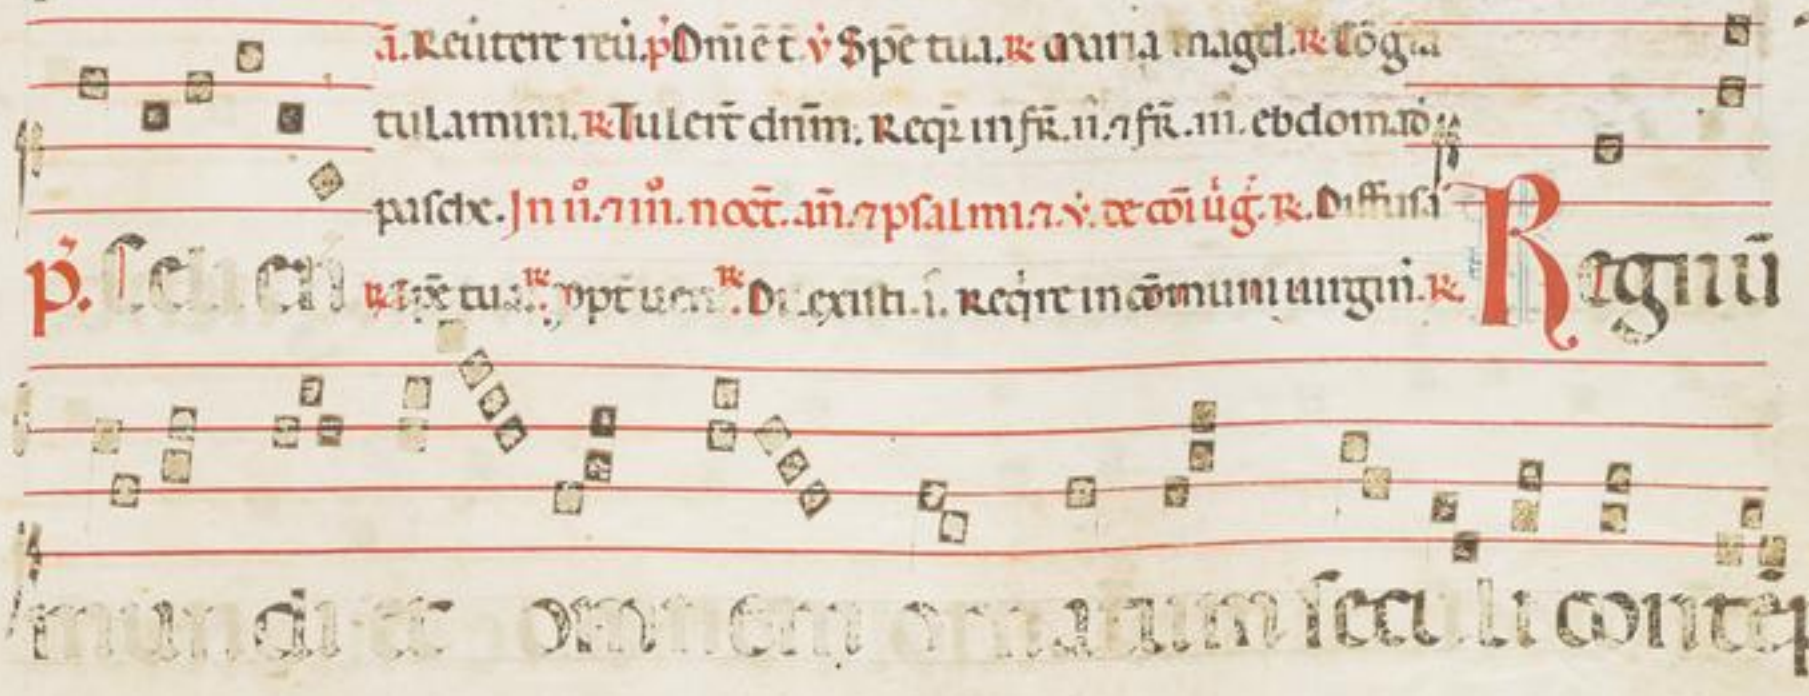 ā. Reu̇tere reu̇. ṗ Dn̄i ē t̄. v̇ Spē tua. ℟ maria magd. ℟ Cōgra
tulamini. ℟ Tuler̄t dn̄m. Reqr̄ in fr̄. ii. ⁊ fr̄. iii. ebdomad̄
pasche. Jn ii̊. ⁊ iii̊. noct̄. an̄. ⁊ psalmi. ⁊ v̇. de cōi u̇ig̊. ℟. Diffusa
ṗ. seculi ℟ tua. ℟ ppt uer ℟ Dilexisti. i. Reqi̇re in cōmuni uirgini. ℟ Regnū
mundi et omnem ornatum seculi contēp